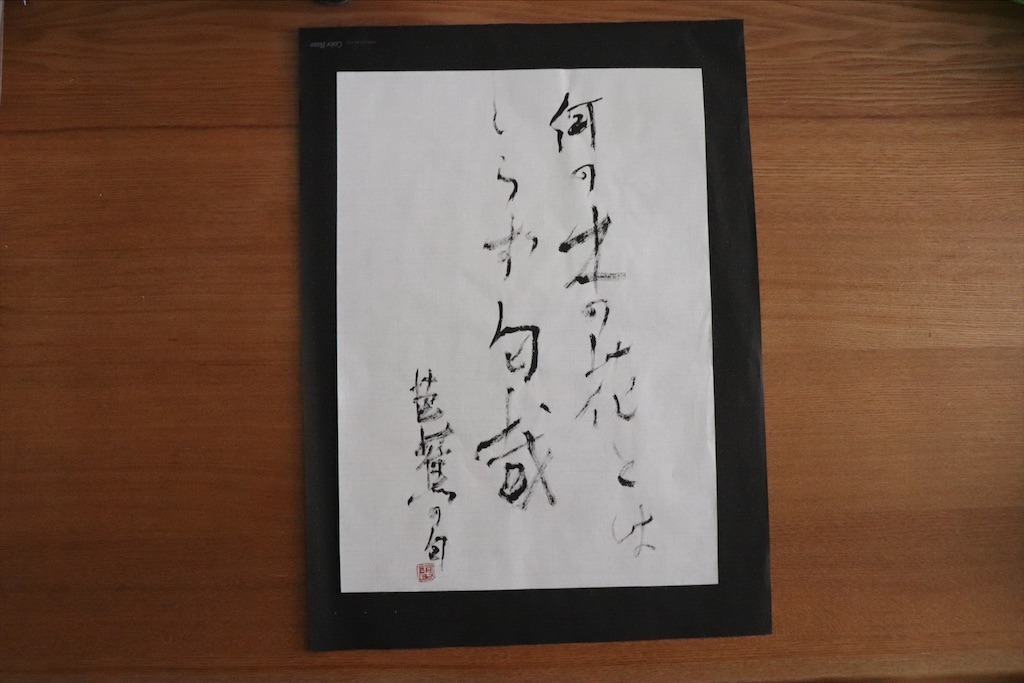 何の木の花とは
しらず匂哉
芭蕉の句